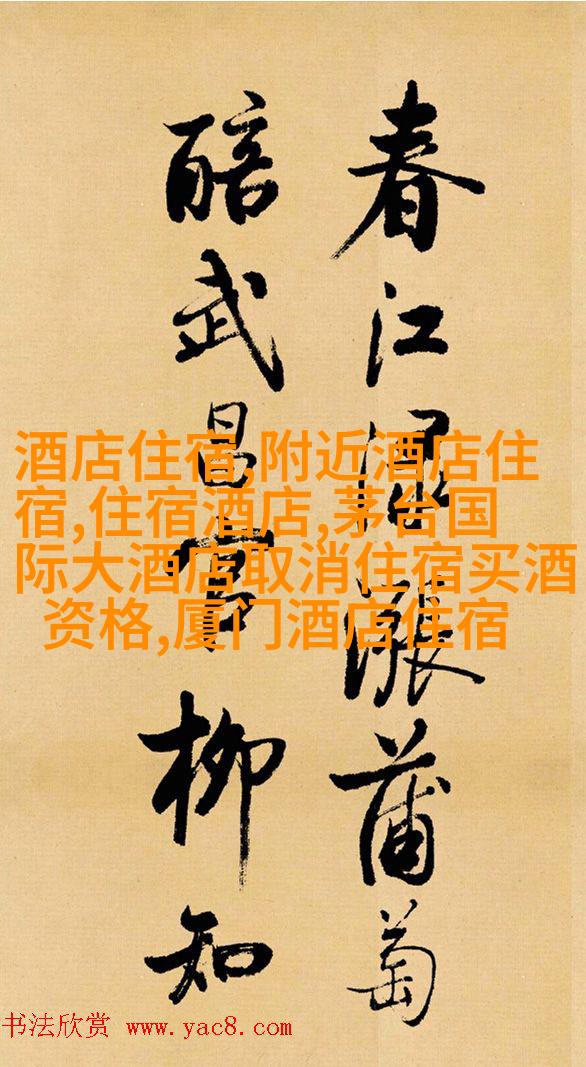 春江渌漲蒲萄
醅武昌官柳知
酒店住宿,附近酒店住
宿,住宿酒店,茅台国
际大酒店取消住宿买酒
资格,厦门酒店住宿
书法欣赏 www.yac8.com